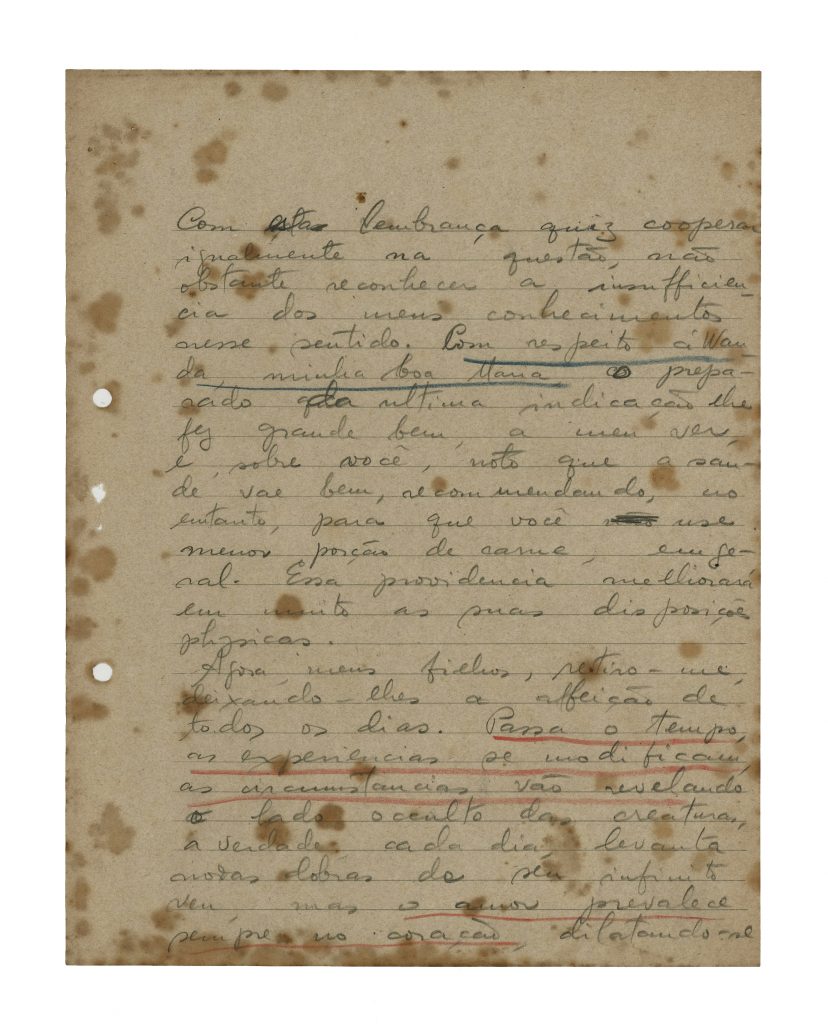 Com esta lembrança quiz cooperar
igualmente na questão, não
obstante reconhecer a insufficien-
cia dos meus conhecimentos
nesse sentido. Com respeito á Wan-
da, minha boa Maria, o prepa-
rado da ultima indicação lhe
fez grande bem, a meu ver,
e, sobre você, noto que a sau-
de vae bem, recommendando, no
entanto, para que você use
menor porção de carne, em ge-
ral. Essa providencia melhorará
em muito as suas disposições
physicas.
Agora, meus filhos, retiro-me,
deixando-lhes a affeição de
todos os dias. Passa o tempo,
as experiencias se modificam,
as circumstancias vão revelando
o lado occulto das creaturas,
a verdade, cada dia, levanta
novas dobras do seu infinito
veu, mas o amor prevalece
sempre no coração, dilatando-se